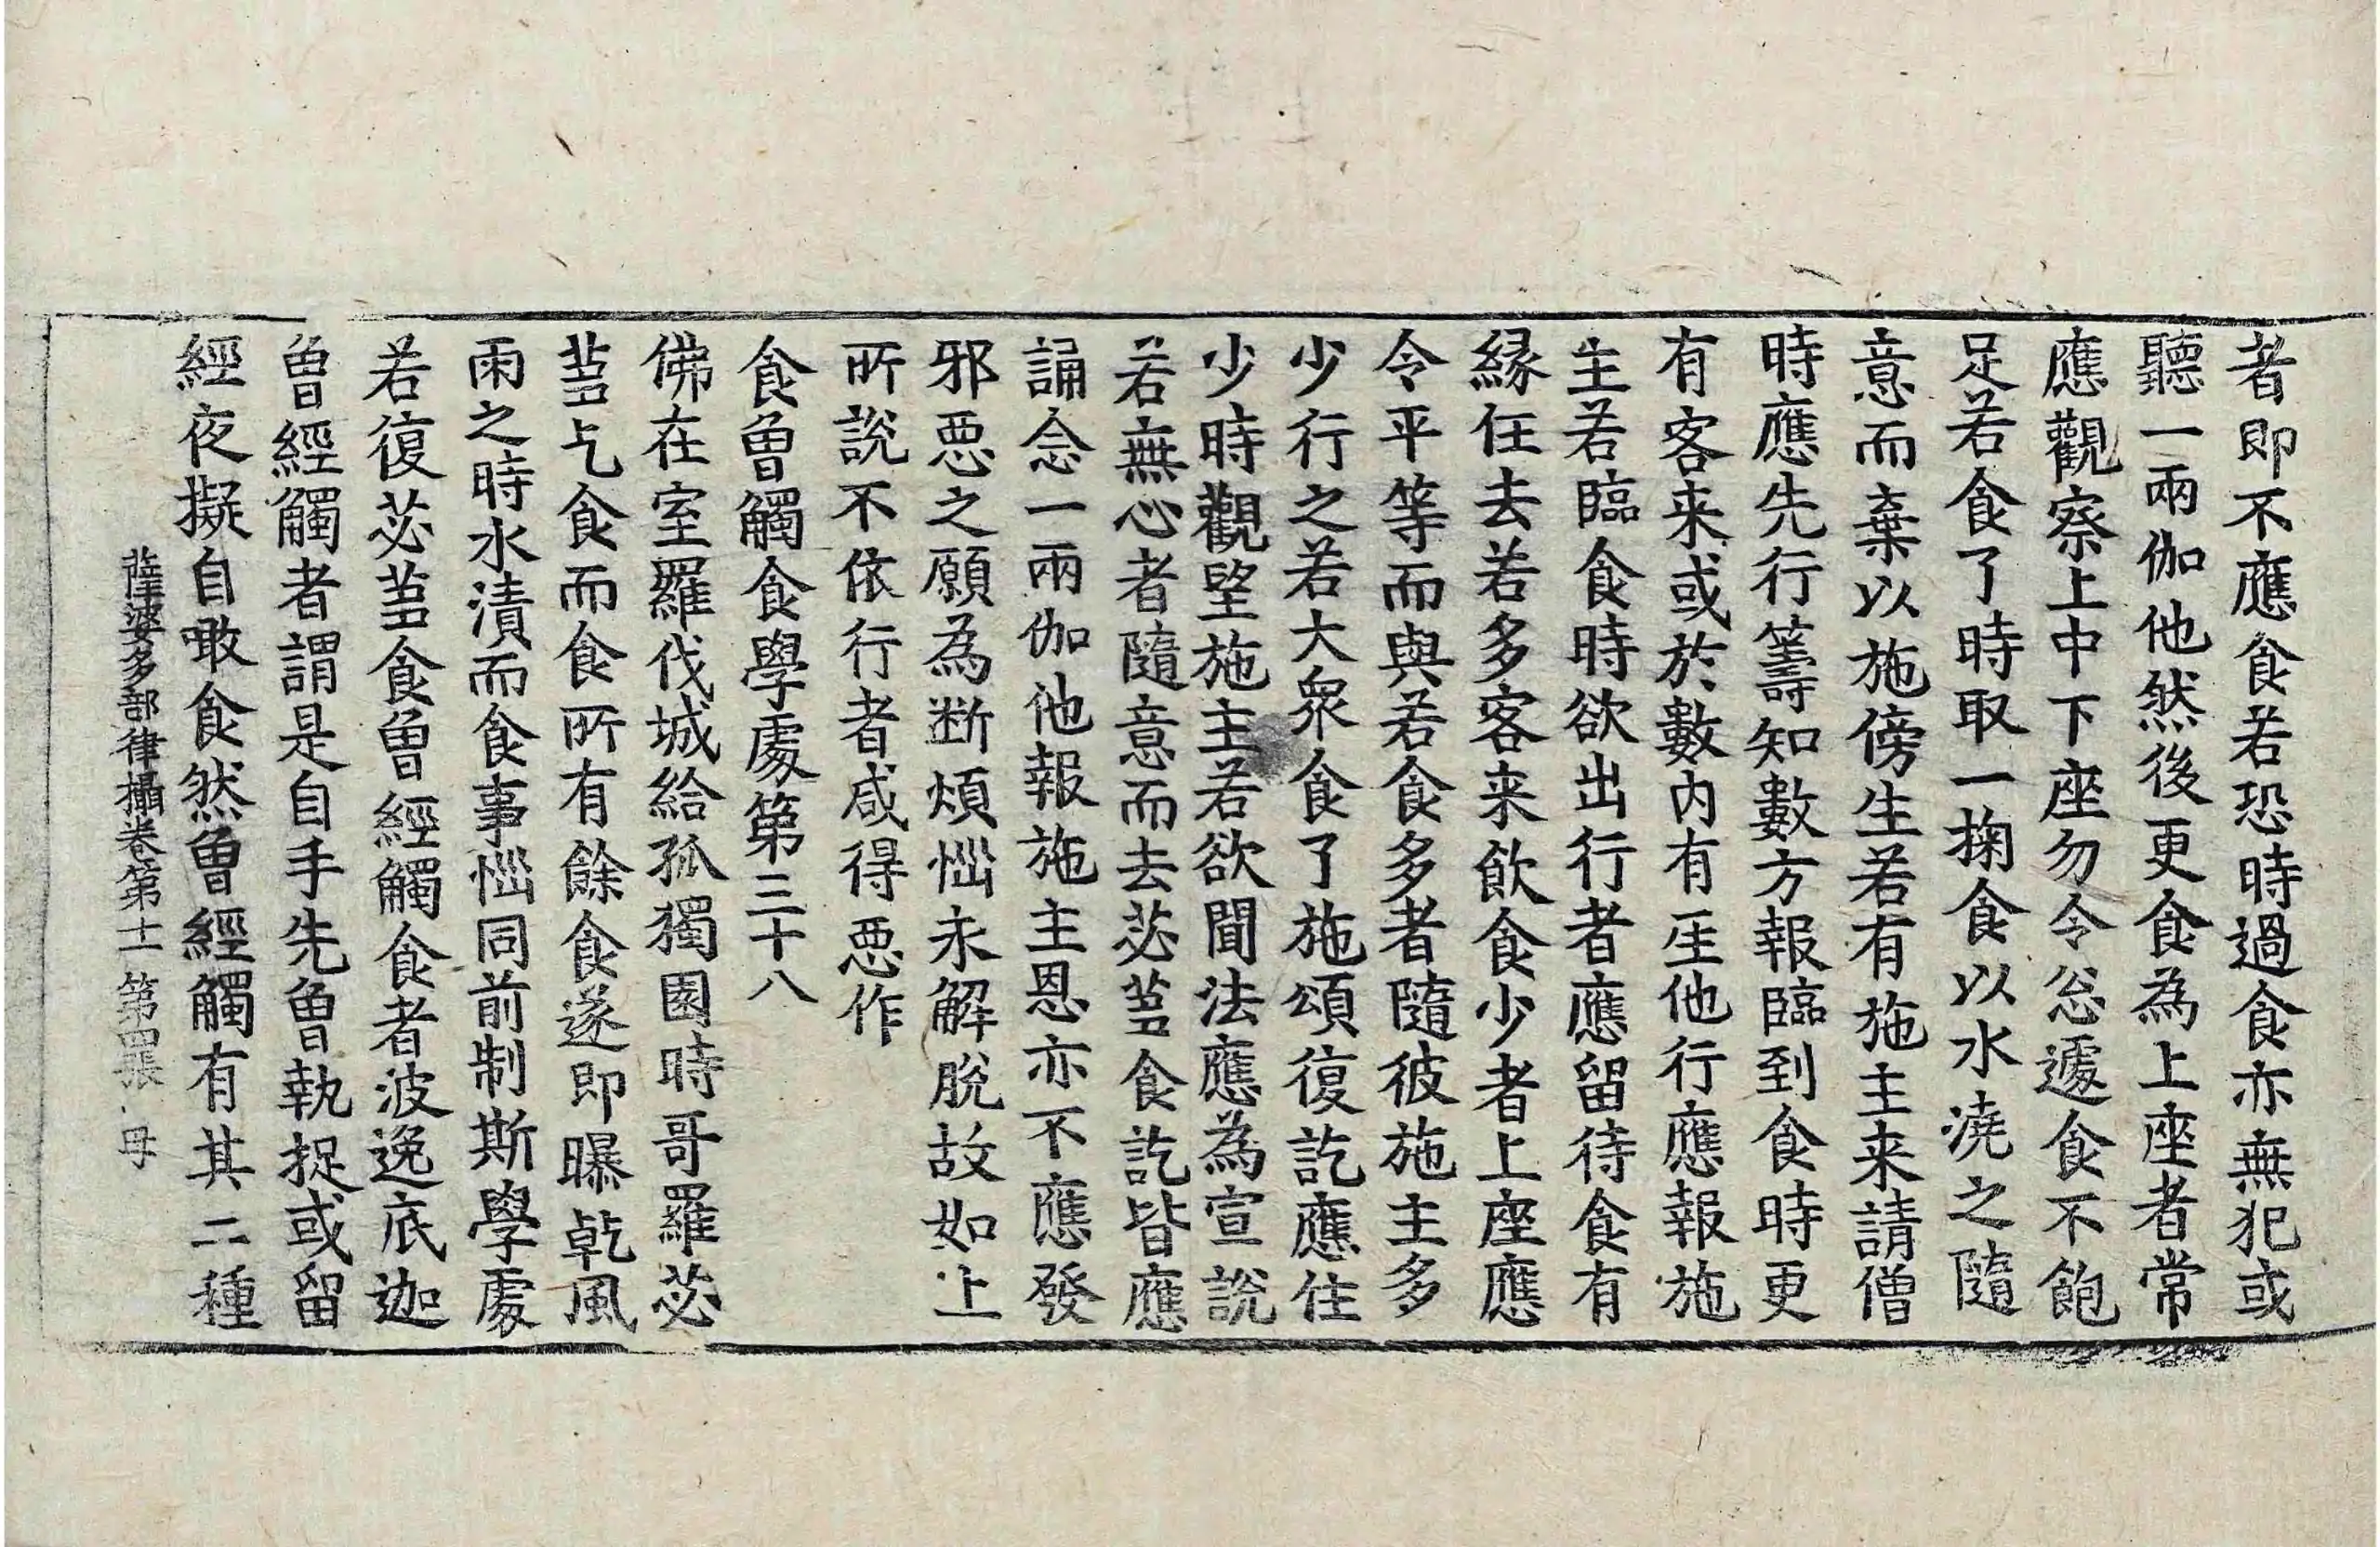 者即不應食若恐時過食亦無犯或
聽一兩伽他然後更食為上座者常
應觀察上中下座勿令忩遽食不飽
足若食了時取一掬食以水澆之隨
意而棄以施傍生若有施主来請僧
時應先行籌知數方報臨到食時更
有客来或於數內有𤯝他行應報施
主若臨食時欲出行者應留待食有
縁任去若多客来飲食少者上座應
令平等而與若食多者隨彼施主多
少行之若大衆食了施頌復訖應住
少時觀望施主若欲聞法應為宣說
若無心者隨意而去苾蒭食訖皆應
誦念一兩伽他報施主恩亦不應發
邪惡之願為断煩惱永解脫故如上
所說不依行者咸得惡作
食曾觸食學處第三十八
佛在室羅伐城給孤獨園時哥羅苾
蒭乞食而食所有餘食遂即曝乾風
雨之時水漬而食事惱同前制斯學處
若復苾蒭食曾經觸食者波逸底迦
曾經觸者謂是自手先曾執捉或留
經夜擬自噉食然曾經觸有其二種
薩婆多部律攝卷第十一 第四張 母